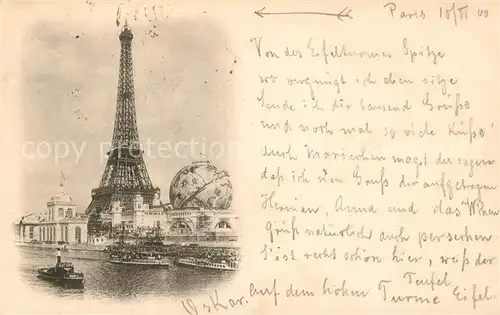 Paris 10/VI 00
Von des Eifelturmes Spitze
wo vergnügt ich oben sitze
Sende ich dir tausend Grüße
und noch mal so viele Küße!
dich Mariechen magst du sagen
daß ich den Gruß dir aufgetragen
Herman, Anna und das
grüß natürlich auch
s'ist recht schön hier, weiß der
Teufel
Oskar. Auf dem hohen Turme Eifel.
copyright